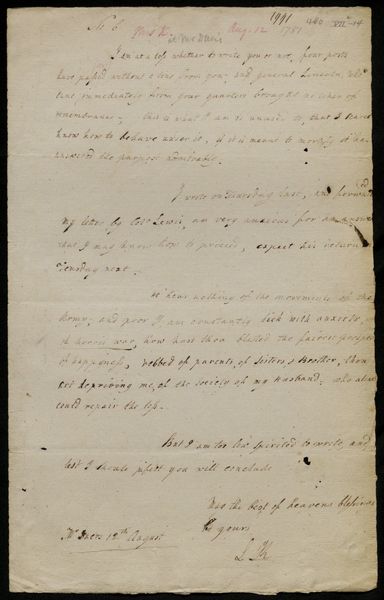 No 6 Mrs K. Aug. 12 1781 1991 460 VII-14
at Mrs Duers
I am at a loss whether to write you or not, four posts
have passed without a line from you, and general Lincoln, who
came immediately from your quarters brought no token of
remembrance, this is what I am so unused to, that I scarce
know how to behave under it, if it is meant to mortify it has
answered the purpose admirably.
I wrote on thursday last, and forward
my letter by Colo Lewis, am very anxious for an answer
that I may know how to proceed, expect his return
Tuesday next.
We hear nothing of the movements of the
Army, and poor I am constantly sick with anxiety,
oh horrid war, how hast thou blasted the fairest prospect
of happiness, robbed of parents, of Sisters & Brother, thou
art depriving me, of the society of my Husband, who alone
could repair the loss.
But I am too low spirited to write, and
lest I should infect you will conclude
May the best of heavens blessings
be yours
L K
Mr Duers 12th August